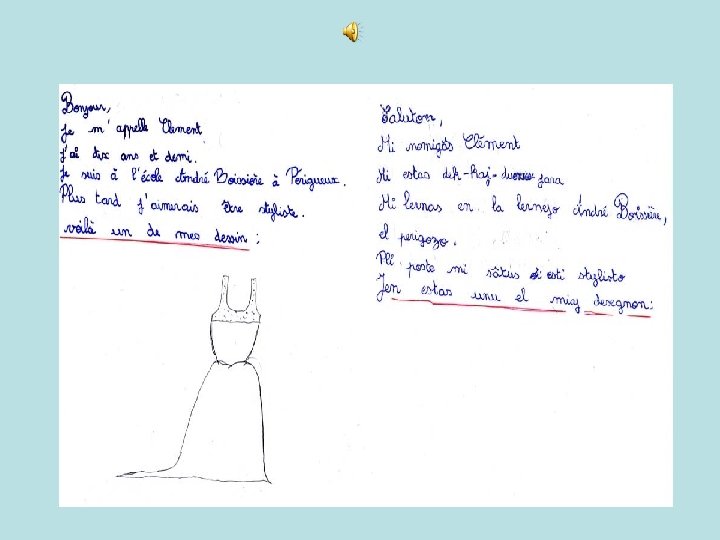 Bonjour,
Je m'appelle Clément
J'ai dix ans et demi.
Je suis à l'école André Boissière à Périgueux.
Plus tard j'aimerais être styliste.
voilà un de mes dessin :
Saluton,
Mi nomiĝas Clément
Mi estas dek-kaj-duono jara
Mi lernas en la lernejo André Boissière,
el perigozo.
Pli poste mi ŝatus esti stylisto
Jen estas unu el miaj desegnon: